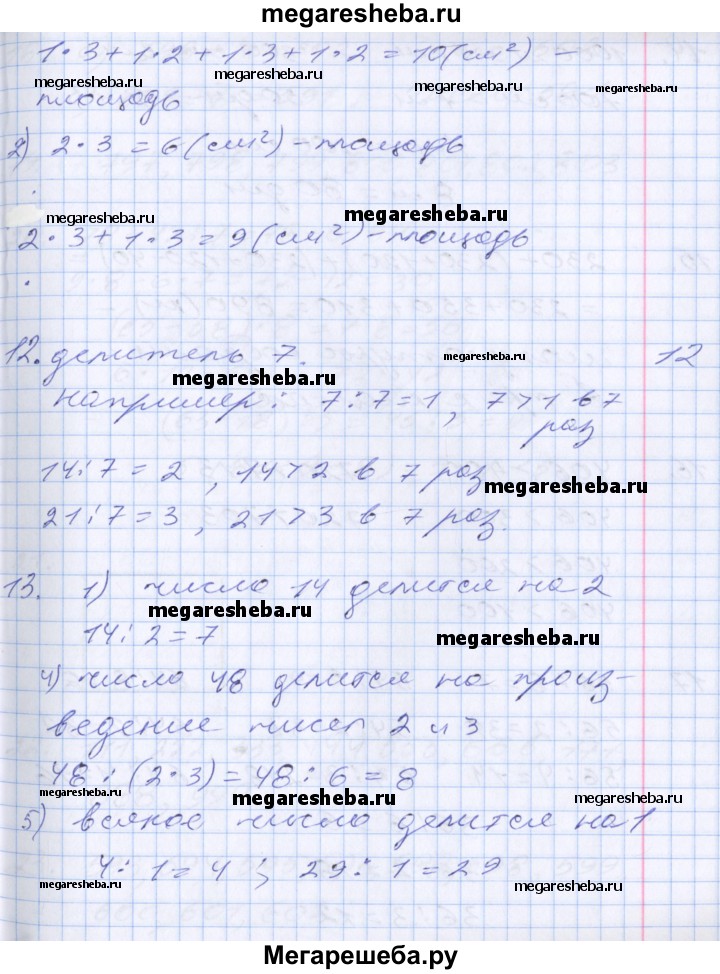 megaresheba.ru
1·3+1·2+1·3+1·2=10(см²) –
megaresheba.ru megaresheba.ru megaresheba.ru
площадь
2) 2·3=6(см²)–площадь
megaresheba.ru megaresheba.ru
2·3+1·3=9(см²)–площадь
12. делитель 7. 12
megaresheba.ru
megaresheba.ru
например: 7:7=1, 7>1 в 7
раз
14:7=2, 14>2 в 7 раз
megaresheba.ru
21:7=3, 21>3 в 7 раз.
13. 1) число 14 делится на 2
megaresheba.ru
14:2=7
megaresheba.ru
4) число 48 делится на произ-
ведение чисел 2 и 3
48:(2·3)=48:6=8
megaresheba.ru megaresheba.ru megaresheba.ru
5) всякое число делится на 1
4:1=4; 29:1=29
megaresheba.ru megaresheba.ru
Мегарешеба.ру